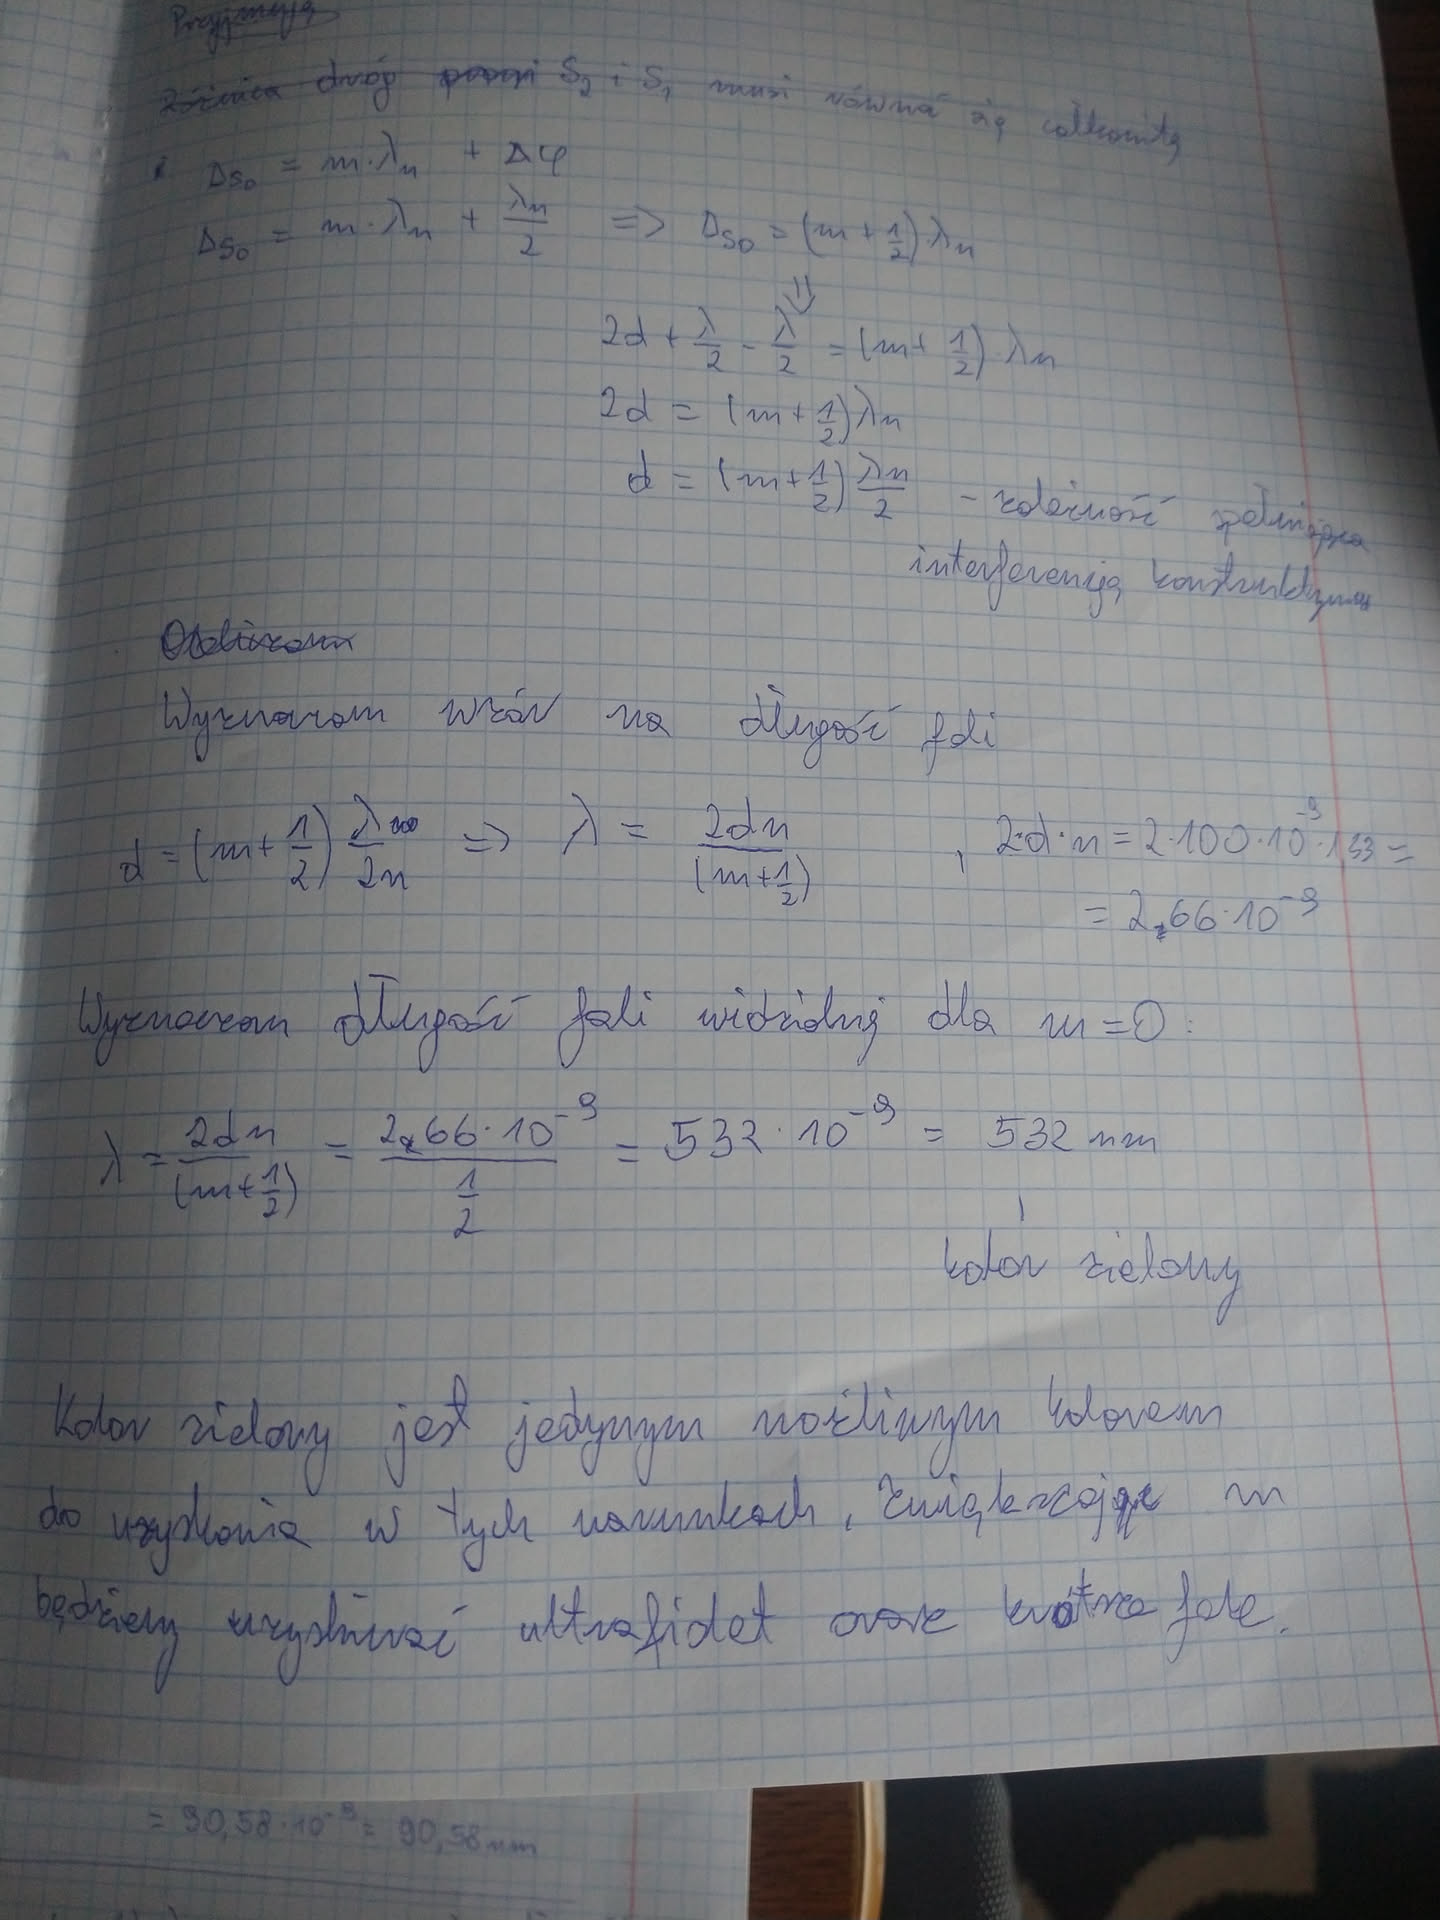 Przyjmuję
Różnica dróg S₂ i S₁ musi równać się całkowitą
Δs₀ = m·λₙ + Δφ
Δs₀ = m·λₙ + λₙ/2 => Δs₀ = (m + 1/2)·λₙ
⇓
2d + λ/2 - λ/2 = (m + 1/2)·λₙ
2d = (m + 1/2)λₙ
d = (m + 1/2) λₙ/2 - zależność spełniająca
interferencję konstruktywną
Wyznaczam wzór na długość fali
d = (m + 1/2) λ/2n => λ = 2dn/(m + 1/2) , 2·d·n = 2·100·10⁻⁹·1,33 =
= 266·10⁻⁹
Wyznaczam długość fali widzialnej dla m = 0:
λ = 2dn/(m + 1/2) = 266·10⁻⁹/(1/2) = 532·10⁻⁹ = 532 nm
kolor zielony
Kolor zielony jest jedynym możliwym kolorem
do uzyskania w tych warunkach, zwiększając m
będziemy uzyskiwać ultrafiolet oraz krótsze fale.
= 90,58·10⁻⁹ = 90,58 nm